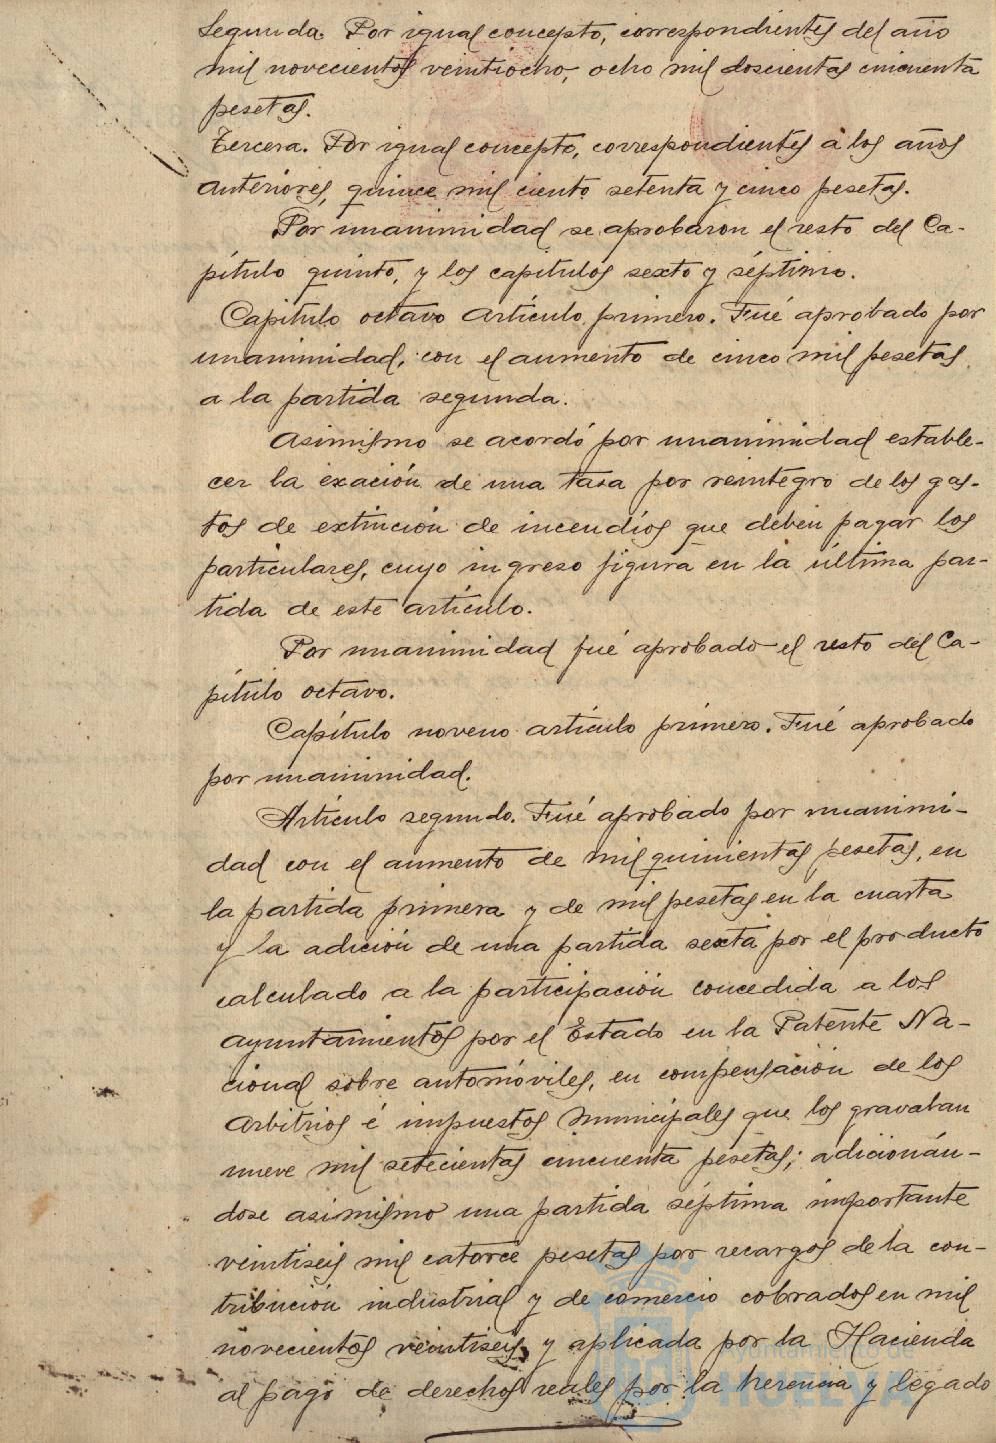 Segunda. Por igual concepto, correspondientes del año
mil novecientos veintiocho, ocho mil doscientas cincuenta
pesetas.
Tercera. Por igual concepto, correspondientes á los años
anteriores, quince mil ciento setenta y cinco pesetas.
Por unanimidad se aprobaron el resto del Ca-
pítulo quinto, y los capitulos sexto y séptimo.
Capitulo octavo Artículo primero. Fué aprobado por
unanimidad, con el aumento de cinco mil pesetas
a la partida segunda.
Asimismo se acordó por unanimidad estable-
cer la exación de una tasa por reintegro de los gas-
tos de extinción de incendios que deben pagar los
particulares, cuyo ingreso figura en la última par-
tida de este artículo.
Por unanimidad fué aprobado el resto del Ca-
pítulo octavo.
Capítulo noveno artículo primero. Fué aprobado
por unanimidad.
Artículo segundo. Fué aprobado por unanimi-
dad con el aumento de mil quinientas pesetas, en
la partida primera y de mil pesetas en la cuarta
y la adición de una partida sexta por el producto
calculado a la participación concedida a los
ayuntamientos por el Estado en la Patente Na-
cional sobre automóviles, en compensación de los
arbitrios é impuestos municipales que los gravaban
nueve mil setecientas cincuenta pesetas; adicionán-
dose asimismo una partida séptima importante
veintiseis mil catorce pesetas por recargos de la con-
tribución industrial y de comercio cobrados en mil
novecientos veintiseis, y aplicada por la Hacienda
al pago de derechos reales por la herencia y legado
Ayuntamiento de
HUELVA